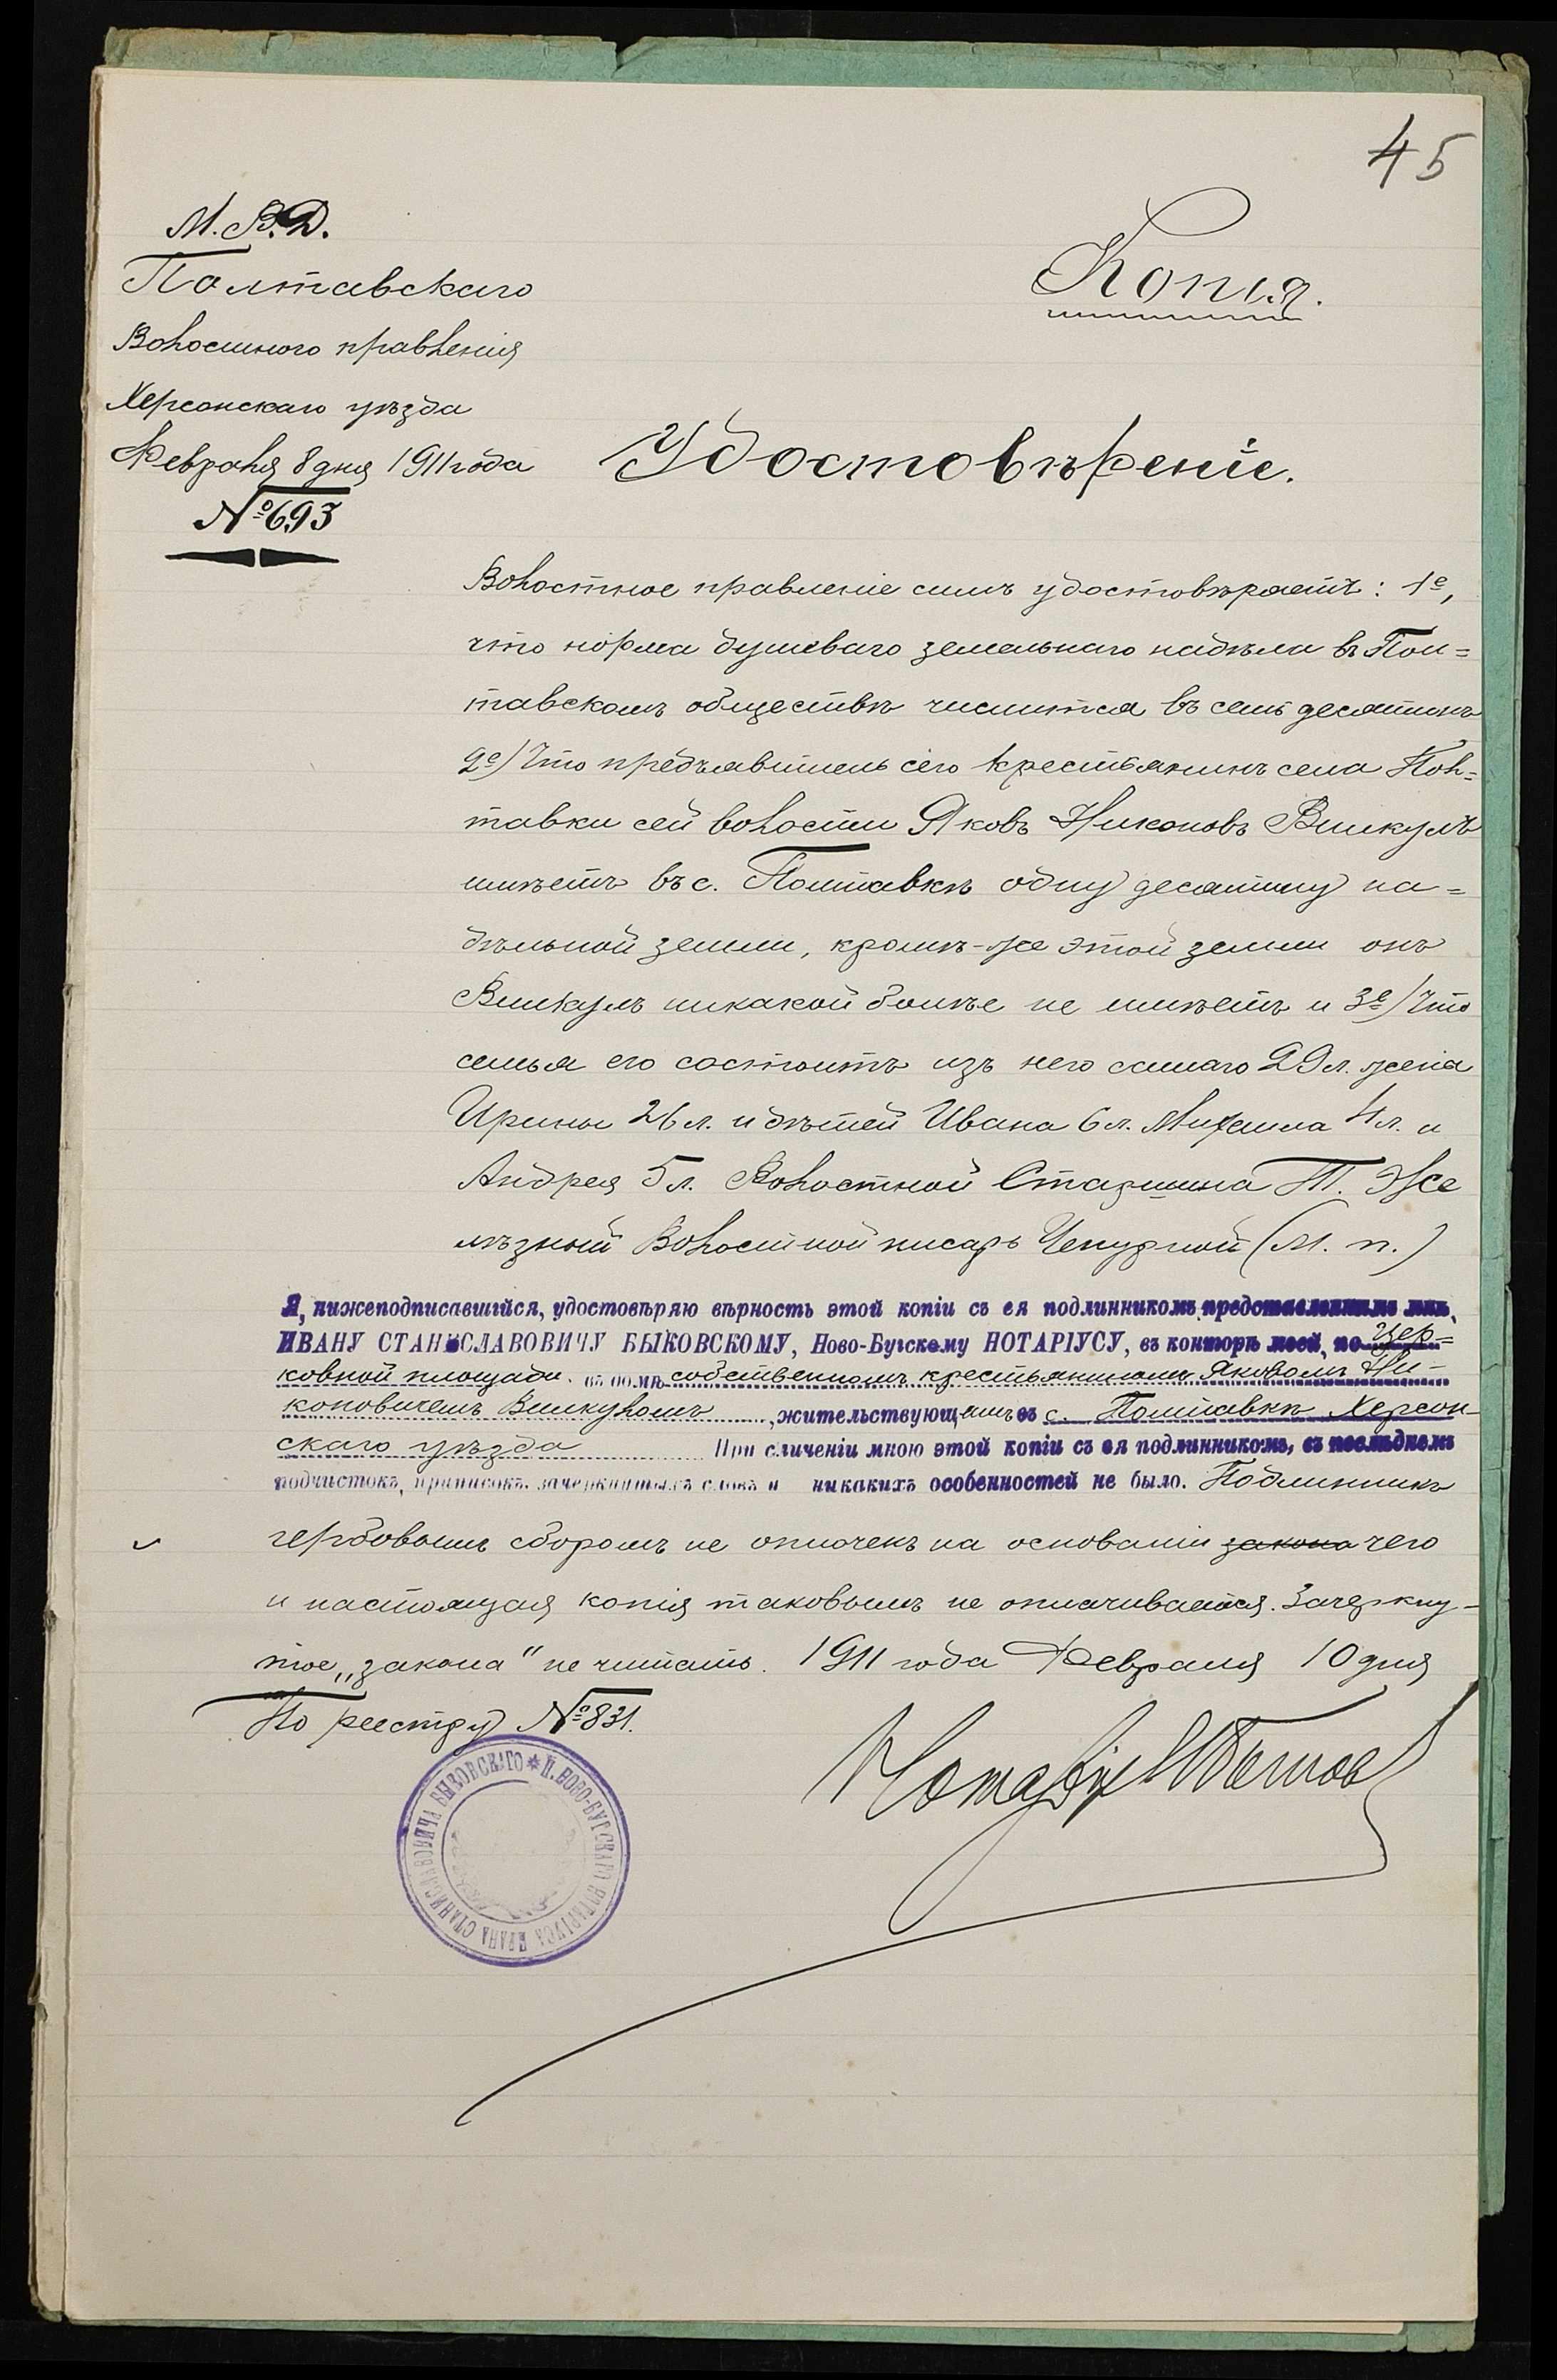 45
М. В. Д.
Полтавскаго
Волостного правленія
Херсонскаго уѣзда
Февраля 8 дня 1911 года
№ 693
Копія.
Удостовѣреніе.
Волостное правленіе симъ удостовѣряетъ: 1е,
что норма душеваго земельнаго надѣла въ Пол=
тавскомъ обществѣ числится въ семь десятинъ
2е) Что предъявитель сего крестьянинъ села Пол=
тавки сей волости Яковъ Никоновъ Вилкулъ
имѣетъ въ с. Полтавкѣ одну десятину на=
дѣльной земли, кромѣ-же этой земли онъ
Вилкулъ никакой болѣе не имѣетъ и 3е) Что
семья его состоитъ изъ него самаго 29 л. жена
Ирины 26 л. и дѣтей Ивана 6 л. Михаила 4 л. и
Андрея 5 л. Волостной Старшина Т. Же
лѣзный Волостной писарь Чепурной (М. п.)
Я, нижеподписавшійся, удостовѣряю вѣрность этой копіи съ ея подлинникомъ представленнымъ мнѣ,
ИВАНУ СТАНИСЛАВОВИЧУ БЫКОВСКОМУ, Ново-Бугскому НОТАРІУСУ, въ конторѣ моей, по Цер=
ковной площади. въ домѣ собственномъ крестьяниномъ Яковомъ Ни-
коновичемъ Вилкуломъ, жительствующимъ въ с. Полтавкѣ Херсон-
скаго уѣзда При сличеніи мною этой копіи съ ея подлинникомъ, въ послѣднемъ
подчистокъ, приписокъ, зачеркнутыхъ словъ и никакихъ особенностей не было. Подлинникъ
гербовымъ сборомъ не оплоченъ на основаніи закона чего
и настоящая копія таковымъ не оплачивается. Зачеркну-
тое „закона" не читать. 1911 года Февраля 10 дня
По реестру № 831.
Нотаріусъ
И. НОВО-БУГСКАГО НОТАРІУСА ИВАНА СТАНИСЛАВОВИЧА БЫКОВСКАГО